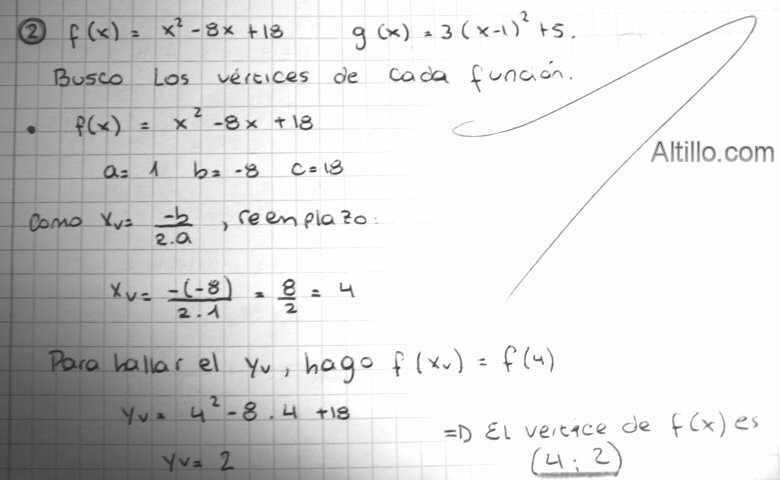 ② f(x) = x² - 8x + 18 g(x) = 3(x-1)² + 5.
Busco Los vértices de cada función.
• f(x) = x² - 8x + 18
Altillo.com
a= 1 b= -8 c= 18
Como Xv= -b/2.a , reemplazo:
Xv= -(-8)/2.1 = 8/2 = 4
Para hallar el Yv, hago f(Xv) = f(4)
Yv= 4² - 8 . 4 + 18
Yv= 2
=D El vértice de f(x) es
(4 ; 2)